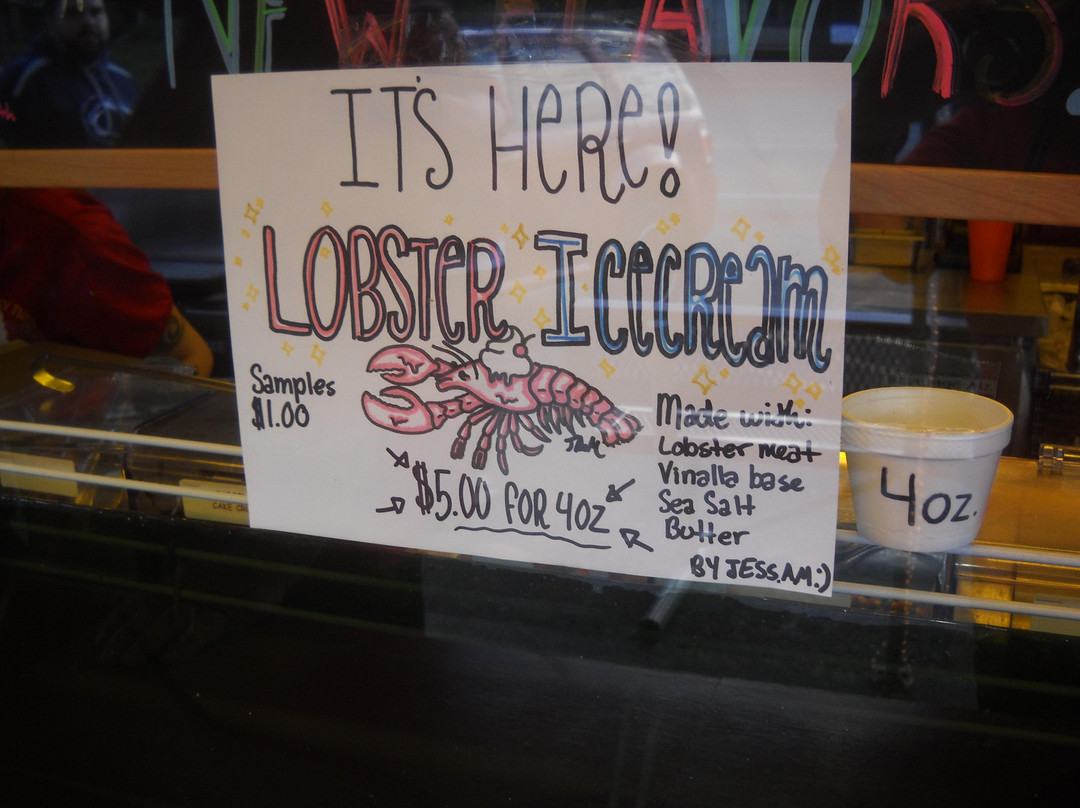 NEW FLAVORS
IT'S HeRe!
LOBSTeR ICeCReam
Samples
$1.00
Made with:
Lobster meat
Vinalla base
Sea Salt
Butter
$5.00 FOR 4OZ
BY JESS.A.M:)
4oz.